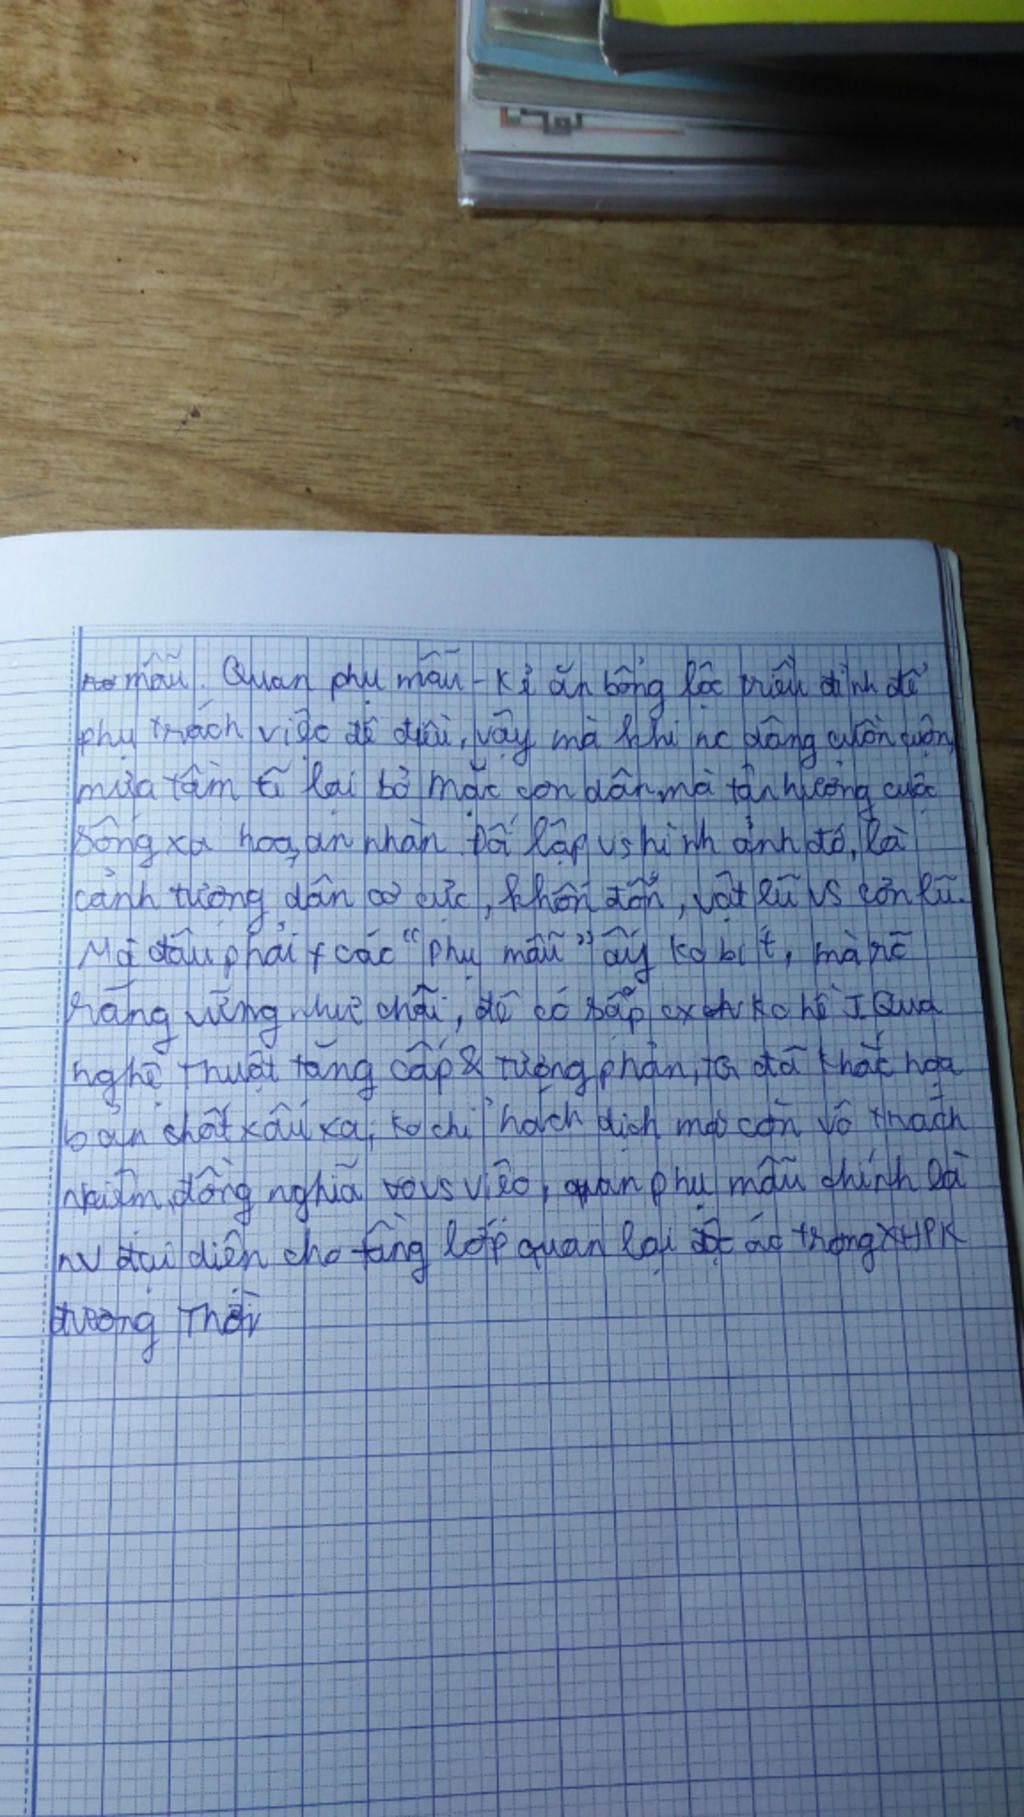 mẫu. Quan phụ mẫu - kẻ ăn bổng lộc triều đình để
phụ trách việc đê điều, vậy mà khi nc dâng cuồn cuộn,
mưa tầm tã lại bỏ mặc con dân mà tận hưởng cuộc
sống xa hoa, an nhàn. Đối lập vs hình ảnh đó, là
cảnh tượng dân cơ cực, khốn đốn, vật lũ vs cơn lũ.
Mà đâu phải các "phụ mẫu" ấy ko bít, mà rõ
ràng vững như chãi, đê có sắp ko hề I. Qua
nghệ thuật tăng cấp & tương phản, tg đã khắc hoạ
bản chất xấu xa, ko chỉ hách dịch mà còn vô trách
nhiệm, đồng nghĩa vs việc, quan phụ mẫu chính là
nv đại diện cho tầng lớp quan lại độc ác trong XHPK
đương thời